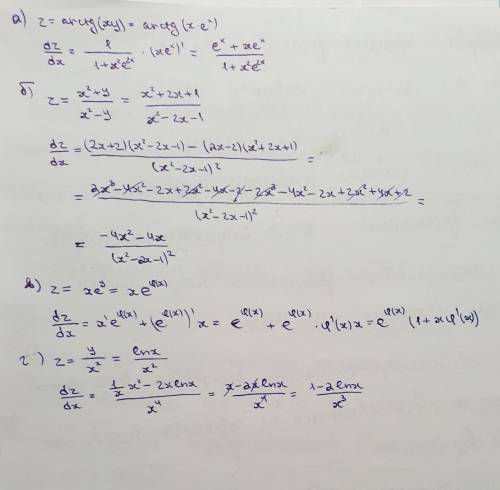 а) z = arctg(xy) = arctg(x·eˣ)
dz/dx = 1/(1+x²e²ˣ) · (xeˣ)' = (eˣ + xeˣ)/(1+x²e²ˣ)
б) z = (x²+y)/(x²-y) = (x²+2x+1)/(x²-2x-1)
dz/dx = ((2x+2)(x²-2x-1) - (2x-2)(x²+2x+1))/(x²-2x-1)² =
= (2x³-4x²-2x+2x²-4x-2-2x³-4x²-2x+2x²+4x+2)/(x²-2x-1)² =
= (-4x²-4x)/(x²-2x-1)²
в) z = xeʸ = xe^φ(x)
dz/dx = x'e^φ(x) + (e^φ(x))'x = e^φ(x) + e^φ(x)·φ'(x)x = e^φ(x)(1+xφ'(x))
г) z = y/x² = lnx/x²
dz/dx = (1/x x² - 2x lnx)/x⁴ = (x-2x lnx)/x⁴ = (1-2lnx)/x³